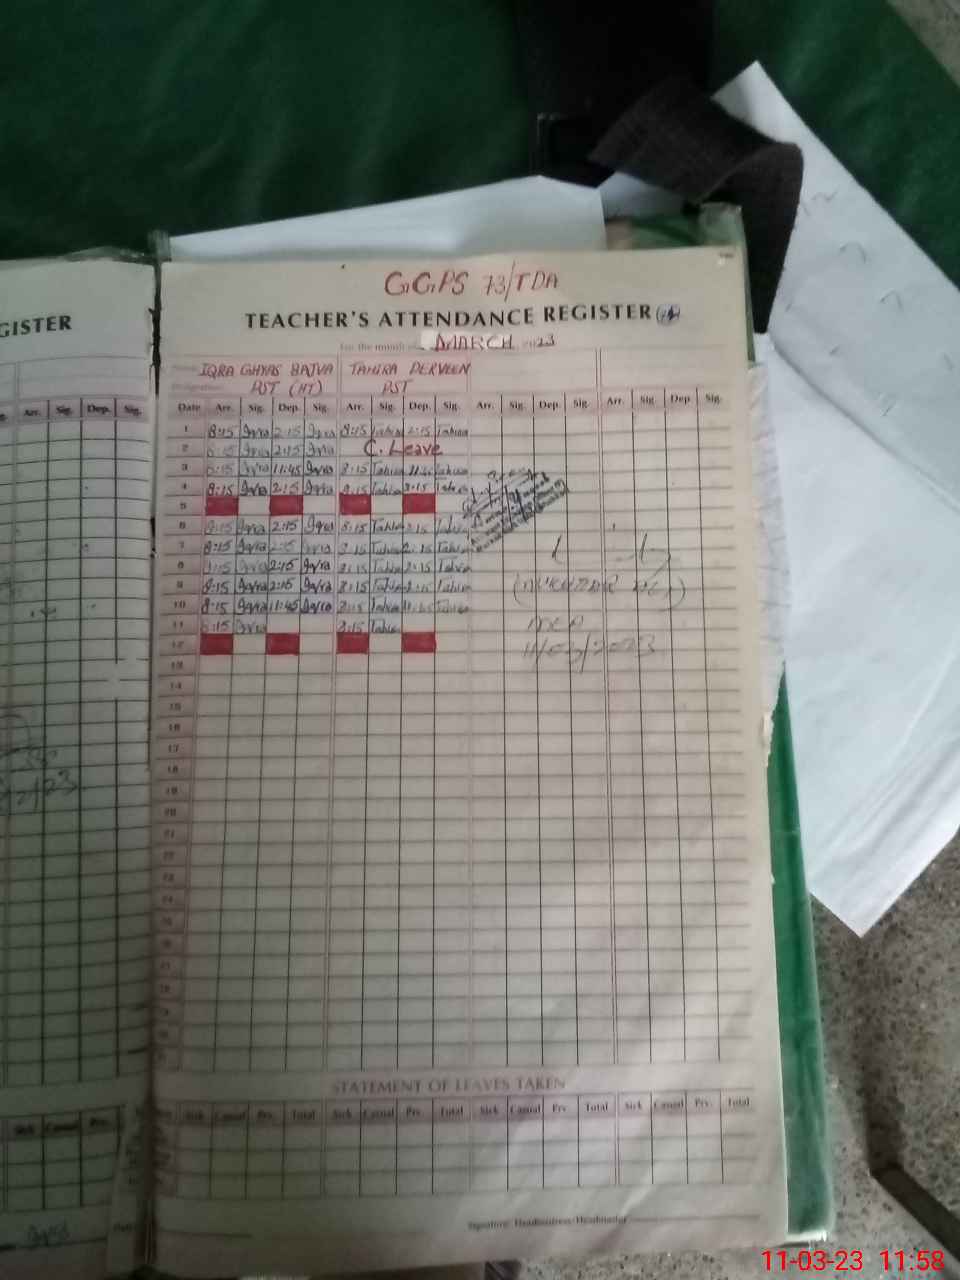 GISTER
Arr. Sig. Dep. Sig.
G.G.P.S 73/TDA
TEACHER'S ATTENDANCE REGISTER
For the month of MARCH 2023
IQRA GHYAS BAJVA TAHIRA PERVEEN
PST (HT) PST
Date Arr. Sig. Dep. Sig. Arr. Sig. Dep. Sig. Arr. Sig. Dep. Sig. Arr. Sig. Dep. Sig.
1 8:15 Iqra 2:15 Iqra 8:15 Tahira 2:15 Tahira
2 8:15 Iqra 2:15 Iqra C. Leave
3 8:15 Iqra 11:45 Iqra 8:15 Tahira 11:45 Tahira
4 8:15 Iqra 2:15 Iqra 8:15 Tahira 2:15 Tahira
5
6 8:15 Iqra 2:15 Iqra 8:15 Tahira 2:15 Tahira
7 8:15 Iqra 2:15 Iqra 8:15 Tahira 2:15 Tahira
8 8:15 Iqra 2:15 Iqra 8:15 Tahira 2:15 Tahira
9 8:15 Iqra 2:15 Iqra 8:15 Tahira 2:15 Tahira
10 8:15 Iqra 11:45 Iqra 8:15 Tahira 11:45 Tahira
11 8:15 Iqra 8:15 Tahira
12
MEA
11/03/2023
13
14
15
16
17
18
19
20
21
22
23
STATEMENT OF LEAVES TAKEN
Sick Casual Prv.
Sick Casual Prv. Total Sick Casual Prv. Total Sick Casual Prv. Total Sick Casual Prv. Total
Signature Headmistress/Headmaster
11-03-23 11:58